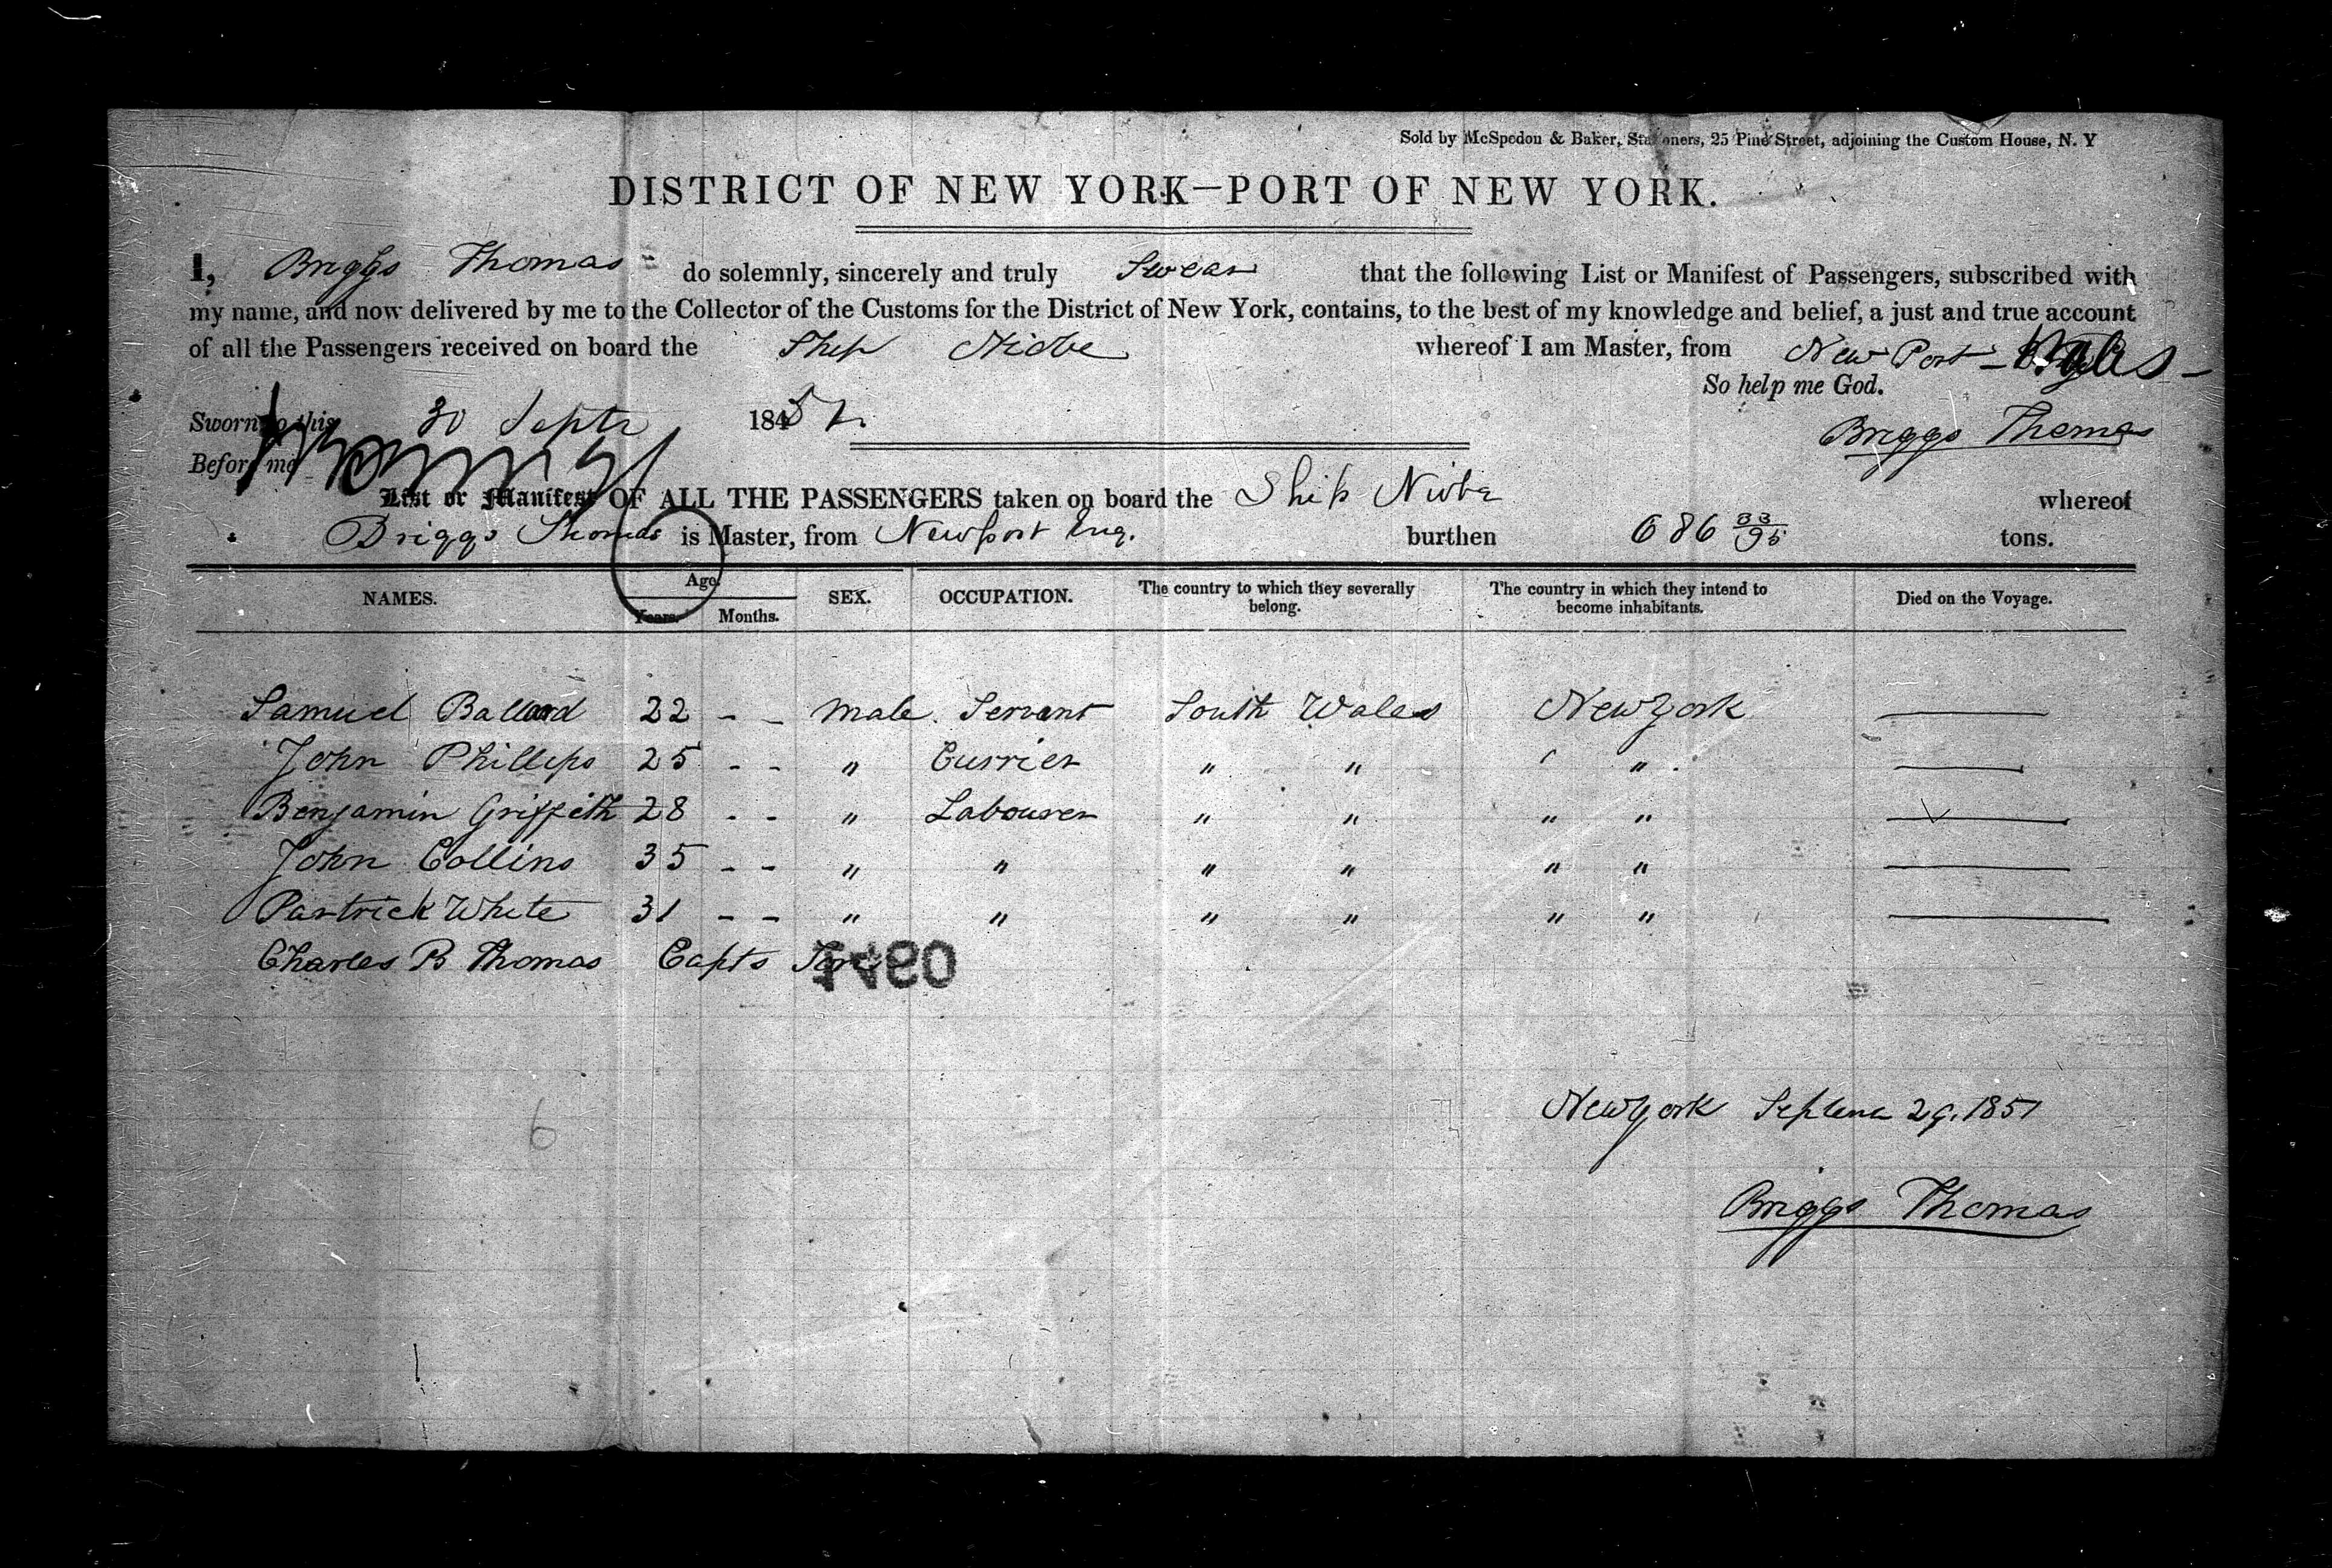 Sold by McSpedon & Baker, Stationers, 25 Pine Street, adjoining the Custom House, N. Y
DISTRICT OF NEW YORK—PORT OF NEW YORK.
I, Briggs Thomas do solemnly, sincerely and truly Swear that the following List or Manifest of Passengers, subscribed with
my name, and now delivered by me to the Collector of the Customs for the District of New York, contains, to the best of my knowledge and belief, a just and true account
of all the Passengers received on board the Ship Niobe whereof I am Master, from New Port - Wales -
So help me God.
Sworn to this 30 Septr 185
Briggs Thomas
Before me
List or Manifest OF ALL THE PASSENGERS taken on board the Ship Niobe whereof
Briggs Thomas is Master, from Newport Eng. burthen 686 33/95 tons.
NAMES. Age. SEX. OCCUPATION. The country to which they severally belong. The country in which they intend to become inhabitants. Died on the Voyage.
Years. Months.
Samuel Ballard 22 - - male. Servant South Wales New York —
John Phillips 25 - - " Currier " " ' " —
Benjamin Griffith 28 - - " Labourer " " " " —
John Collins 35 - - " " " " " " —
Partrick White 31 - - " " " " " " —
Charles B Thomas Capts
6
New York 29. 1851
Briggs Thomas